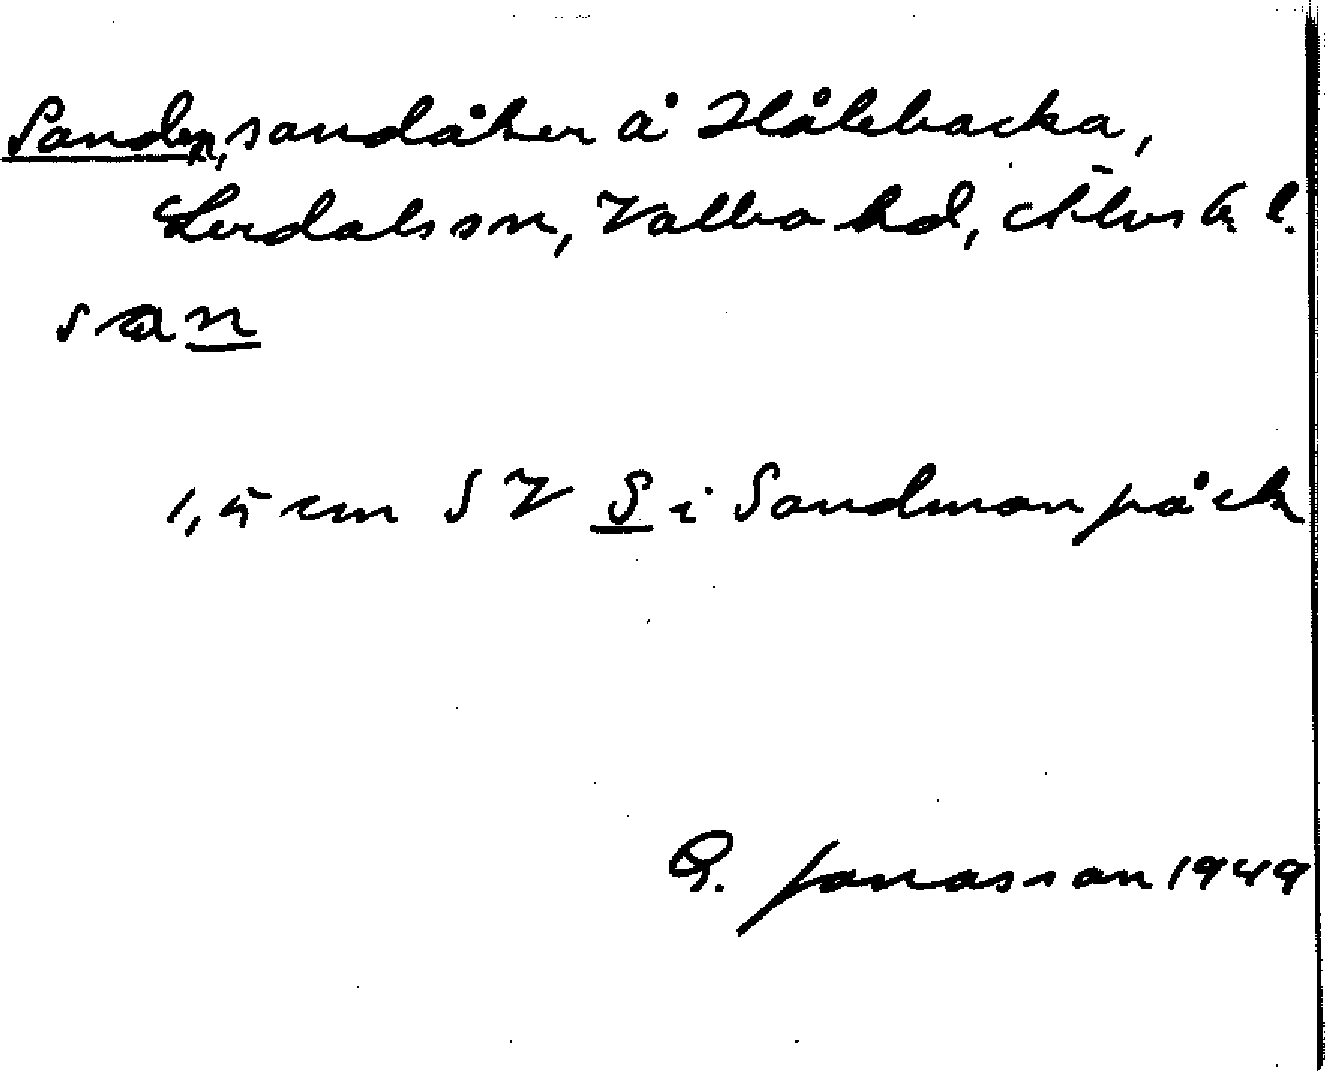 Sanden, sandåker å Hålebacka,
Lerdals sn, Valbo hd, Älvsb. l.
san
1,5 cm SV S i Sandman på ek
G. Jonasson 1949